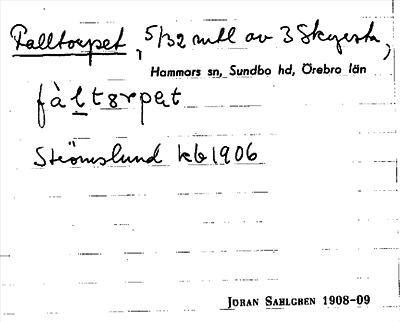 Falltorpet, 5/32 mtl av 3 Skyrsta,
Hammars sn, Sundbo hd, Örebro län
fàltɛrpet
Strömslund kb 1906
JOHAN SAHLGREN 1908-09